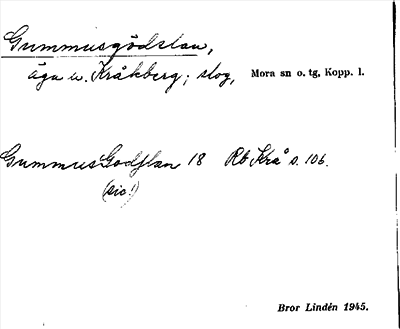 Gummusgödslan,
äga u. Kråkberg; skog, Mora sn o. tg, Kopp. l.
GummusGodslan 18 Rb Krå s. 106.
(sic!)
Bror Lindén 1945.